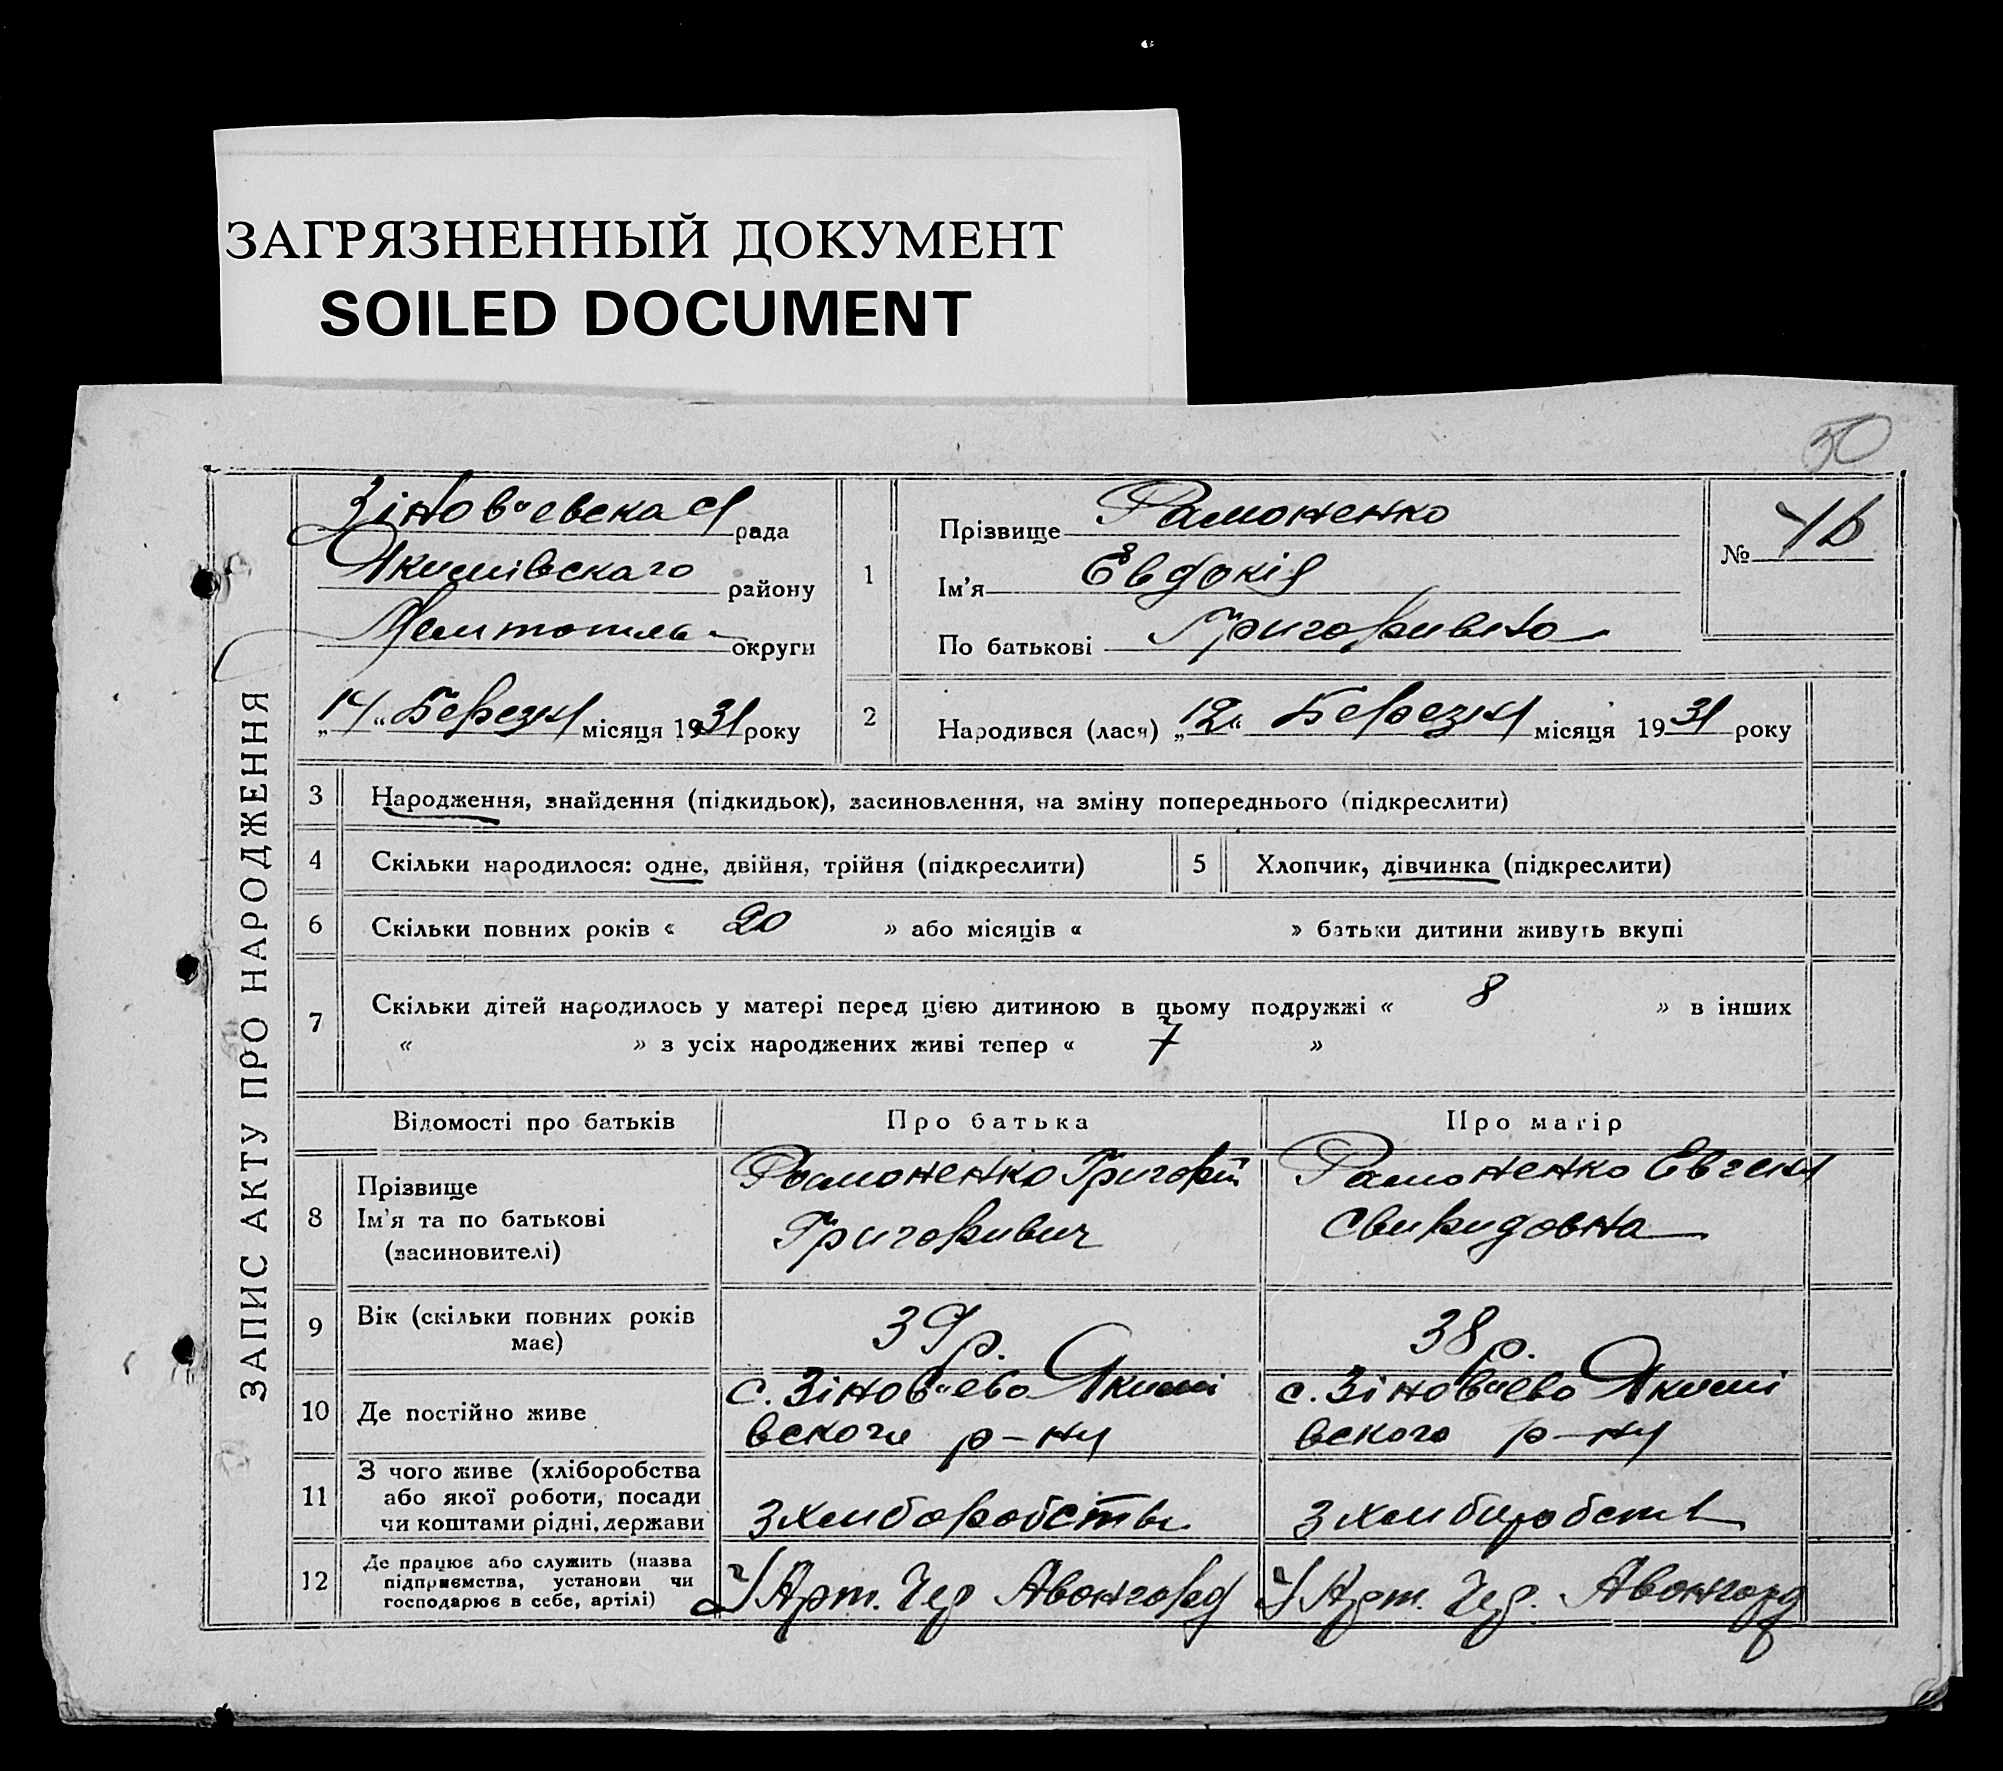 ЗАГРЯЗНЕННЫЙ ДОКУМЕНТ
SOILED DOCUMENT
50
ЗАПИС АКТУ ПРО НАРОДЖЕННЯ
Зінов'евская рада
Якимівскаго району
округи
„14“ Березня місяця 1931 року
1
Прізвище Рамоненко
Ім'я Євдокія
По батькові Григоривна
№
2
Народився (лася) „12“ Березня місяця 1931 року
3 Народження, знайдення (підкидьок), засиновлення, на зміну попереднього (підкреслити)
4 Скільки народилося: одне, двійня, трійня (підкреслити) 5 Хлопчик, дівчинка (підкреслити)
6 Скільки повних років « 20 » або місяців « » батьки дитини живуть вкупі
7 Скільки дітей народилось у матері перед цією дитиною в цьому подружжі « 8 » в інших
« » з усіх народжених живі тепер « 7 »
Відомості про батьків Про батька Про матір
8 Прізвище
Ім'я та по батькові
(засиновителі)
Рамоненко Григорій
Григоривич
Рамоненко Евгения
Свиридовна
9 Вік (скільки повних років
має)
39 р.
38 р.
10 Де постійно живе
с. Зінов'ево Якимі
вского р-ну
с. Зінов'ево Якимі
вского р-ну
11 З чого живе (хліборобства
або якої роботи, посади
чи коштами рідні, держави
З хлиборобства
З хлиборобств
12 Де працює або служить (назва
підприємства, установи чи
господарює в себе, артілі)
У Арт. Чер Авонгорд
У Арт. Чер. Авонгорд